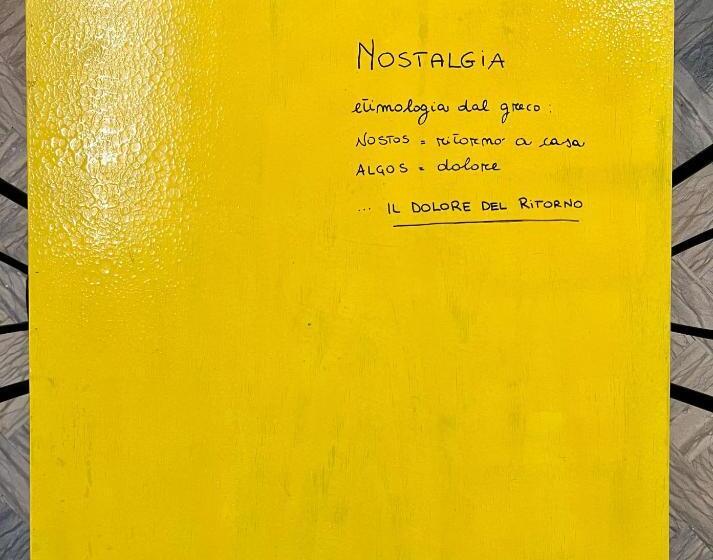 NOSTALGIA
etimologia dal greco:
NOSTOS = ritorno a casa
ALGOS = dolore
... IL DOLORE DEL RITORNO